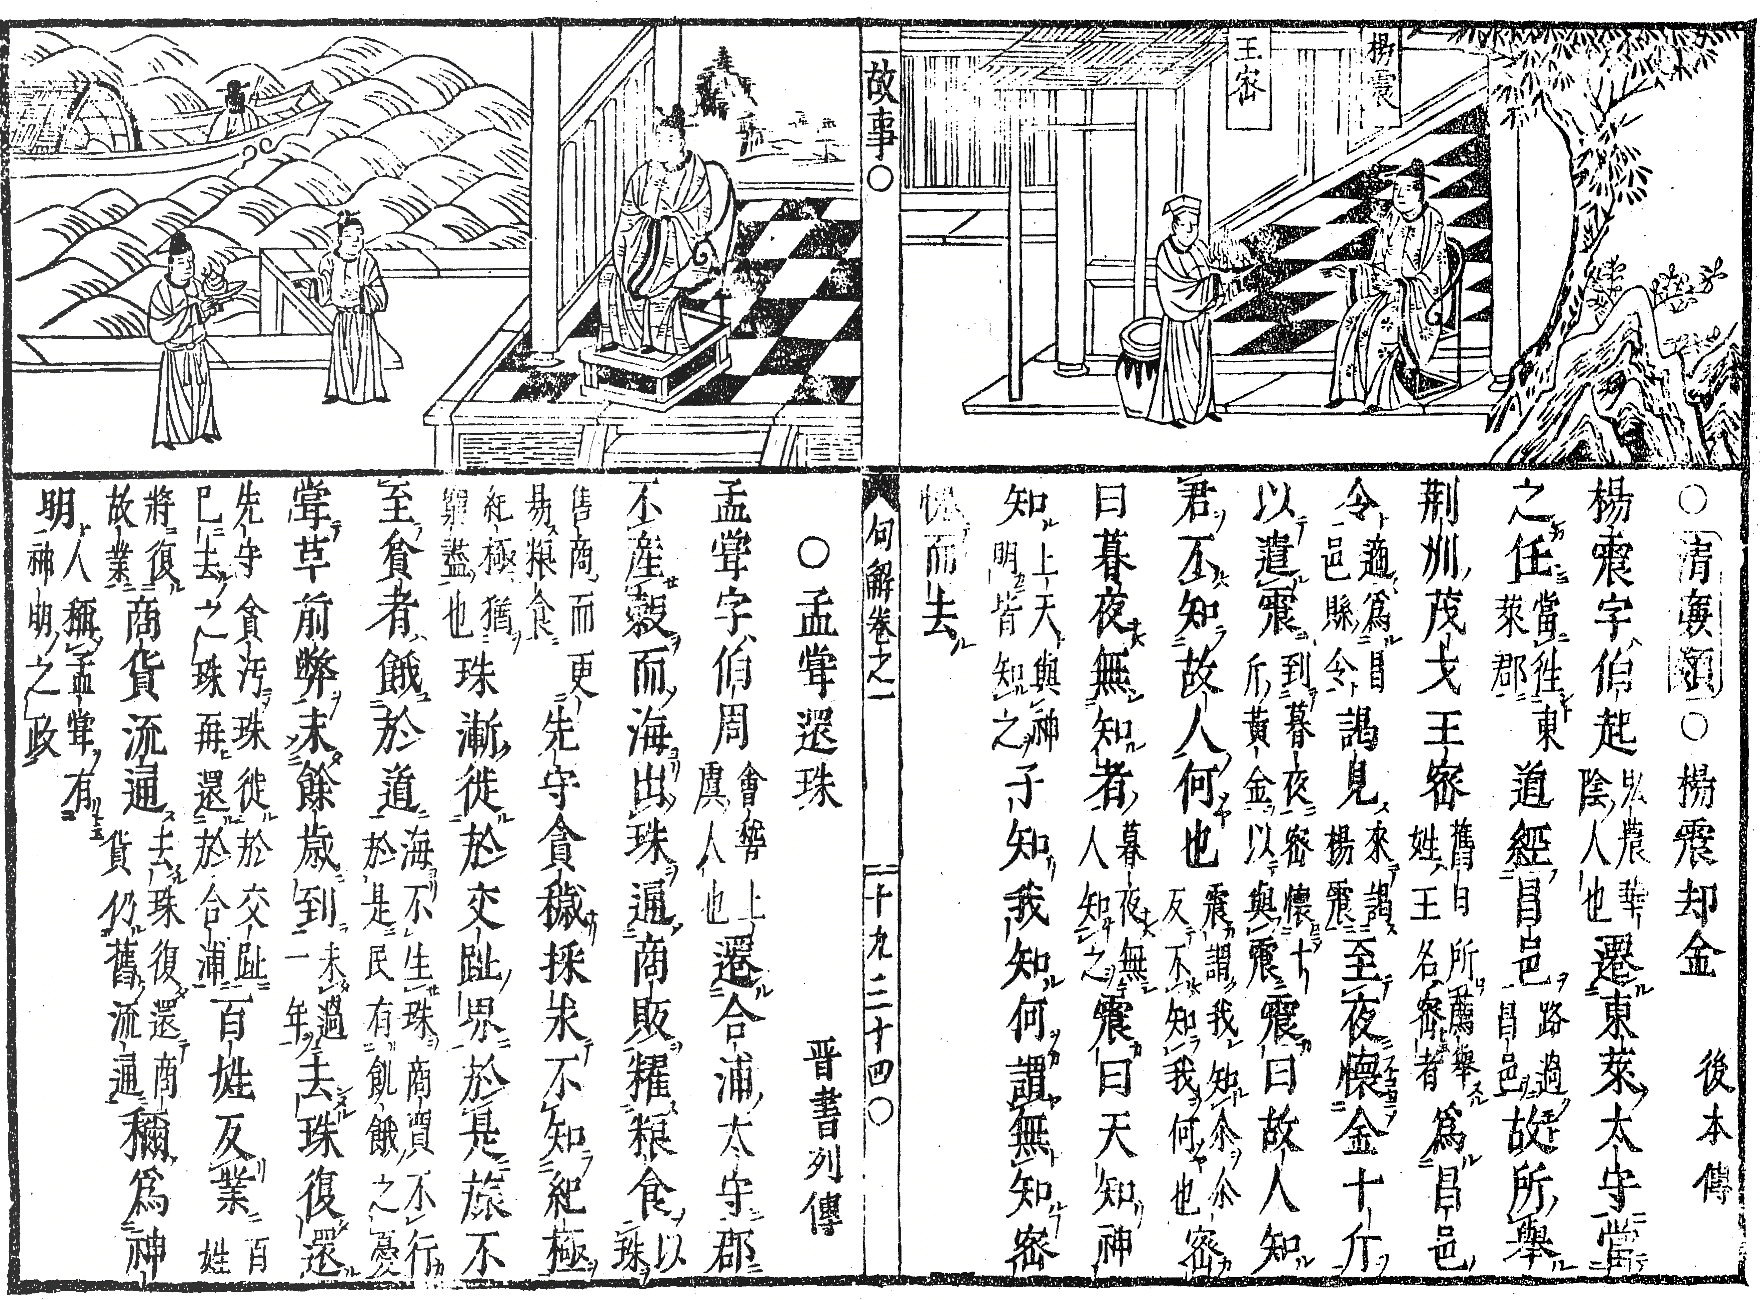 楊震
王密
○清廉類○楊震却金 後本傳
楊震字伯起弘農華陰人也遷東萊太守當
之任當徃東萊郡道經昌邑路過昌邑故所舉
荆州茂才王密舊日所薦舉姓王名密者爲昌邑
令適爲昌邑縣令謁見來謁楊震至夜懐金十斤
以遺震到暮夜密懐十斤黃金以與震震曰故人知
君不知故人何也震謂我知尒尒反不知我何也密
曰暮夜無知者暮夜無人知之震曰天知神
知上天與神明皆知之子知我知何謂無知密
愧而去
故事○
句解卷之一 二十九 三十四○
○孟甞還珠 晋書列傳
孟甞字伯周會稽上虞人也遷合浦太守郡
不産糓而海出珠通商販糴粮食以珠
售商而更易粮食先守貪穢採求不知紀極
紀極猶窮盡也珠漸徙於交趾界於是旅不
至貧者餓於道海不生珠商賈不行於是民有飢餓之憂
甞革前弊未餘歳到未過一年去珠復還
先守貪汚珠徙於交趾已去之珠再還於合浦百姓反業百姓
將復故業商貨流通去珠復還商貨仍舊流通稱爲神
明人稱孟甞有神明之政